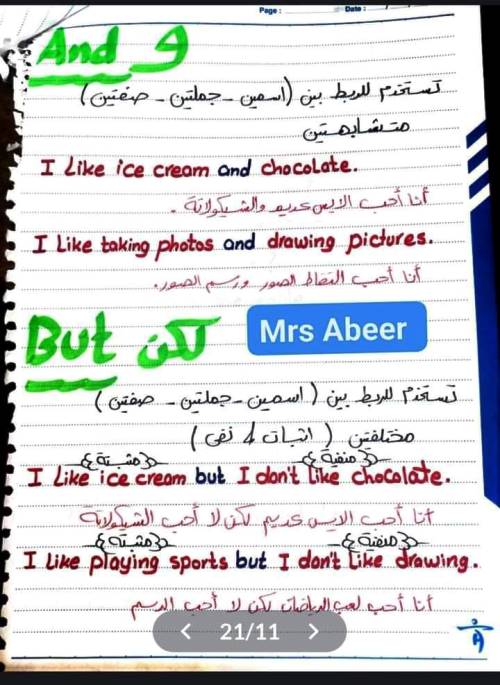 Page :
Date :
And و
تستخدم للربط بين (اسمين - جملتين - صفتين)
متشابهتين
I Like ice cream and chocolate.
أنا أحب الايس كريم والشيكولاتة .
I Like taking photos and drawing pictures.
أنا أحب التقاط الصور ورسم الصور.
But لكن
Mrs Abeer
تستخدم للربط بين ( اسمين - جملتين - صفتين )
مختلفتين ( اثبات / نفى )
{مثبتة} {منفية}
I Like ice cream but I don't like chocolate.
أنا أحب الايس كريم لكن لا أحب الشيكولاتة
{مثبتة} {منفية}
I Like playing sports but I don't like drawing.
أنا أحب لعب الرياضات لكن لا أحب الرسم
21/11